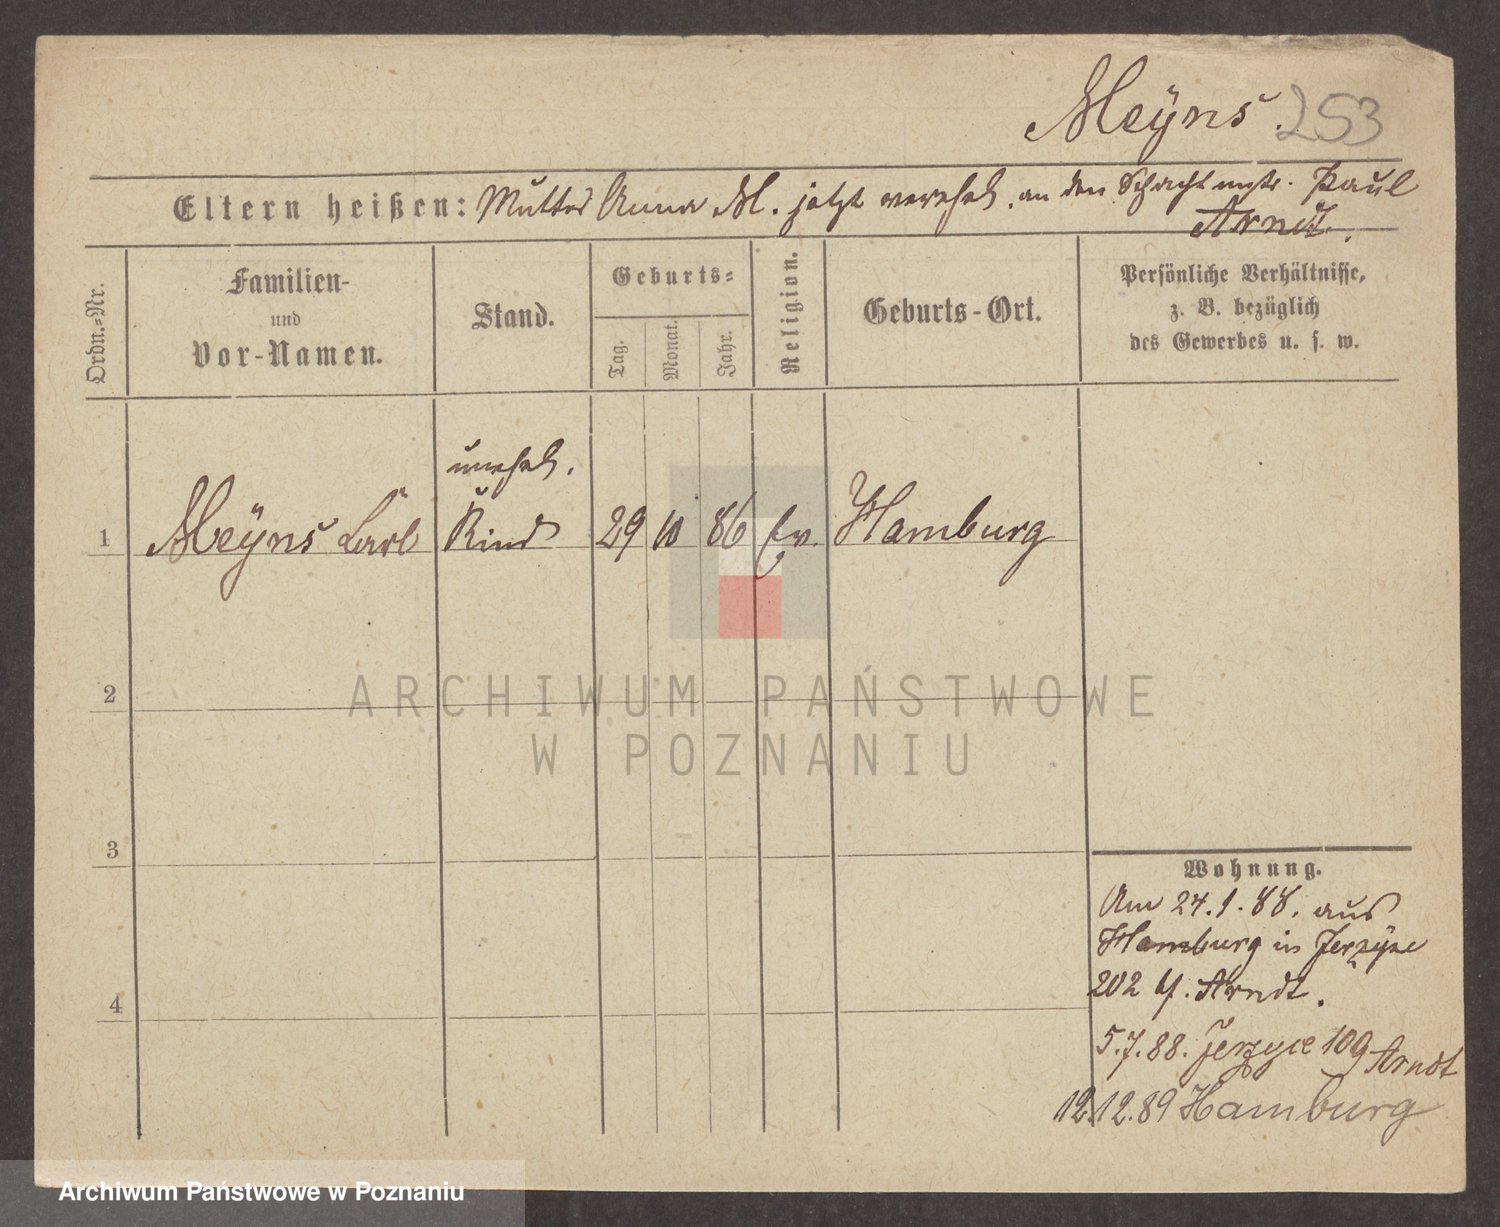 Meÿns. 253
Eltern heißen: Mutter Anna M. jetzt verehel. an den Schachtmstr. Paul
Arndt.
Ordn.-Nr.
Familien-
und
Vor-Namen.
Stand.
Geburts-
Tag.
Monat.
Jahr.
Religion.
Geburts-Ort.
Persönliche Verhältnisse,
z. B. bezüglich
des Gewerbes u. s. w.
unehel.
1 Meÿns Carl Kind 29 10 86 Ev. Hamburg
2
3
4
Wohnung.
Am 24.1.88. aus
Hamburg in Jerzÿce
202 b/. Arndt.
5.7.88. Jerzyce 109 Arndt
12.12.89 Hamburg
ARCHIWUM PAŃSTWOWE
W POZNANIU
Archiwum Państwowe w Poznaniu